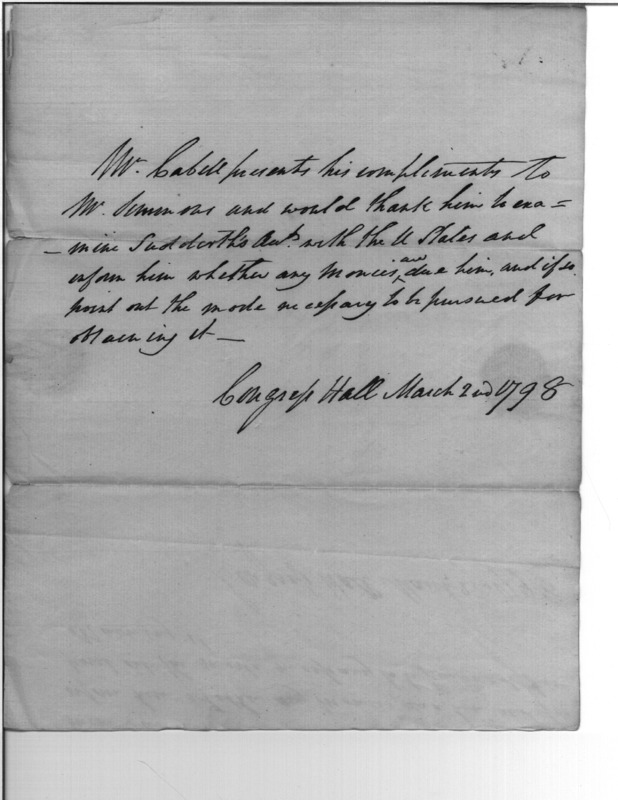 Mr. Cabell presents his compliments to
Mr. Simmons and would thank him to exa=
-mine Sudderth's Acct. with the U States and
inform him whether any Monies are due him, and if so
point out the mode necessary to be pursued for
obtaining it —
Congress Hall March 2nd 1798